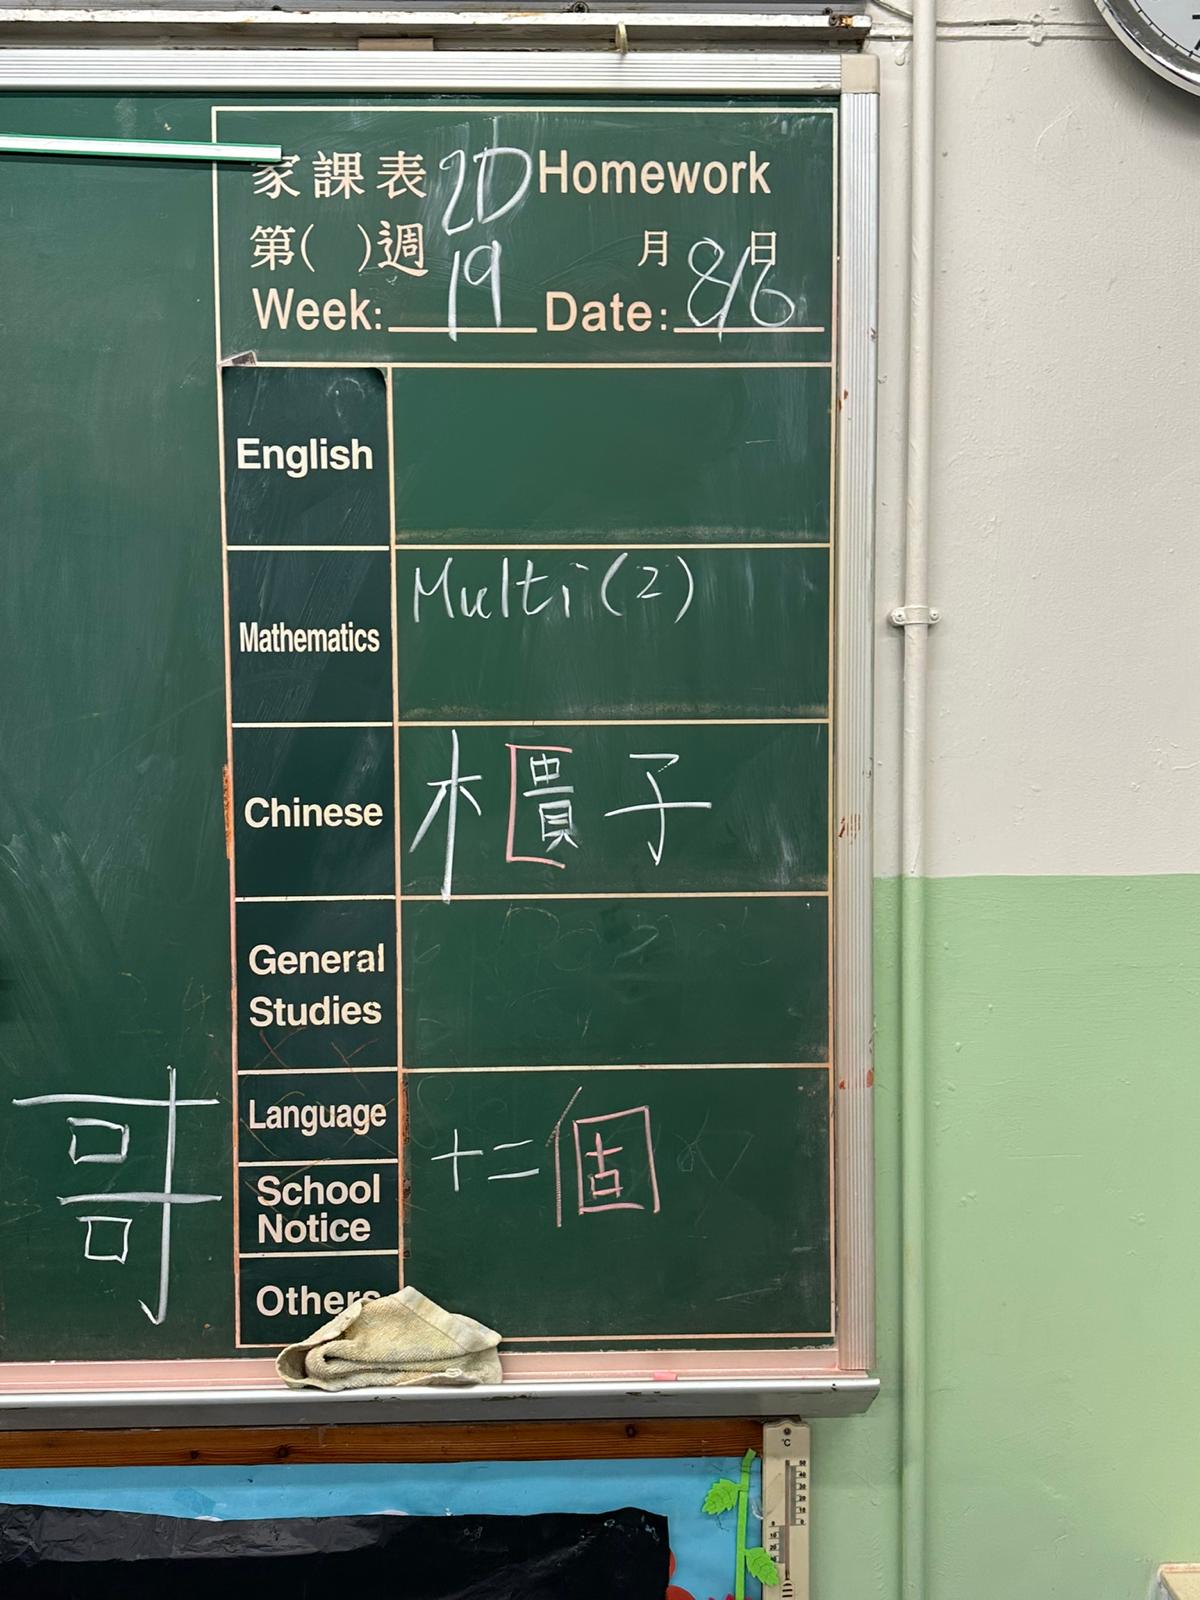 家課表 2D Homework
第( )週 月 日
Week: 19 Date: 8/6
English
Mathematics Multi (2)
Chinese 櫃子
General
Studies
Language
School
Notice
十二個
Others
哥
°C